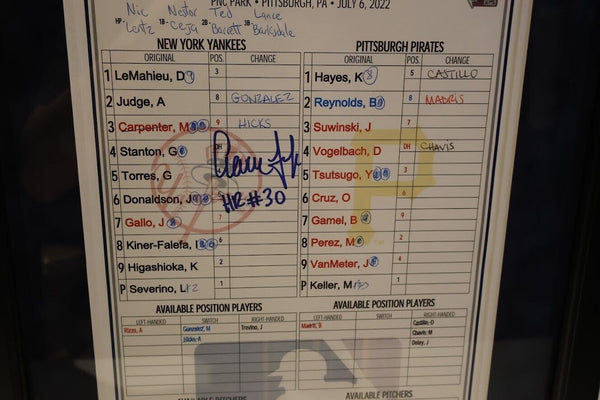 PNC PARK • PITTSBURGH, PA • JULY 6, 2022
Nic Nestor Ted Lance
HP- Lentz 1B- Ceja 2B- Barrett 3B- Barksdale
NEW YORK YANKEES
ORIGINAL POS. CHANGE
1 LeMahieu, D 3
2 Judge, A 8 GONZALEZ
3 Carpenter, M 9 HICKS
4 Stanton, G DH
5 Torres, G
6 Donaldson, J 5
HR #30
7 Gallo, J 7
8 Kiner-Falefa, I 6
9 Higashioka, K 2
P Severino, L 1
PITTSBURGH PIRATES
ORIGINAL POS. CHANGE
1 Hayes, K 5 CASTILLO
2 Reynolds, B 8 MADRIS
3 Suwinski, J 7
4 Vogelbach, D DH CHAVIS
5 Tsutsugo, Y 3
6 Cruz, O 6
7 Gamel, B 9
8 Perez, M 2
9 VanMeter, J 4
P Keller, M 1
AVAILABLE POSITION PLAYERS
LEFT-HANDED SWITCH RIGHT-HANDED
Rizzo, A Gonzalez, M Trevino, J
Hicks, A
AVAILABLE POSITION PLAYERS
LEFT-HANDED SWITCH RIGHT-HANDED
Madris, B Castillo, D
Chavis, M
Delay, J
AVAILABLE PITCHERS
AVAILABLE PITCHERS